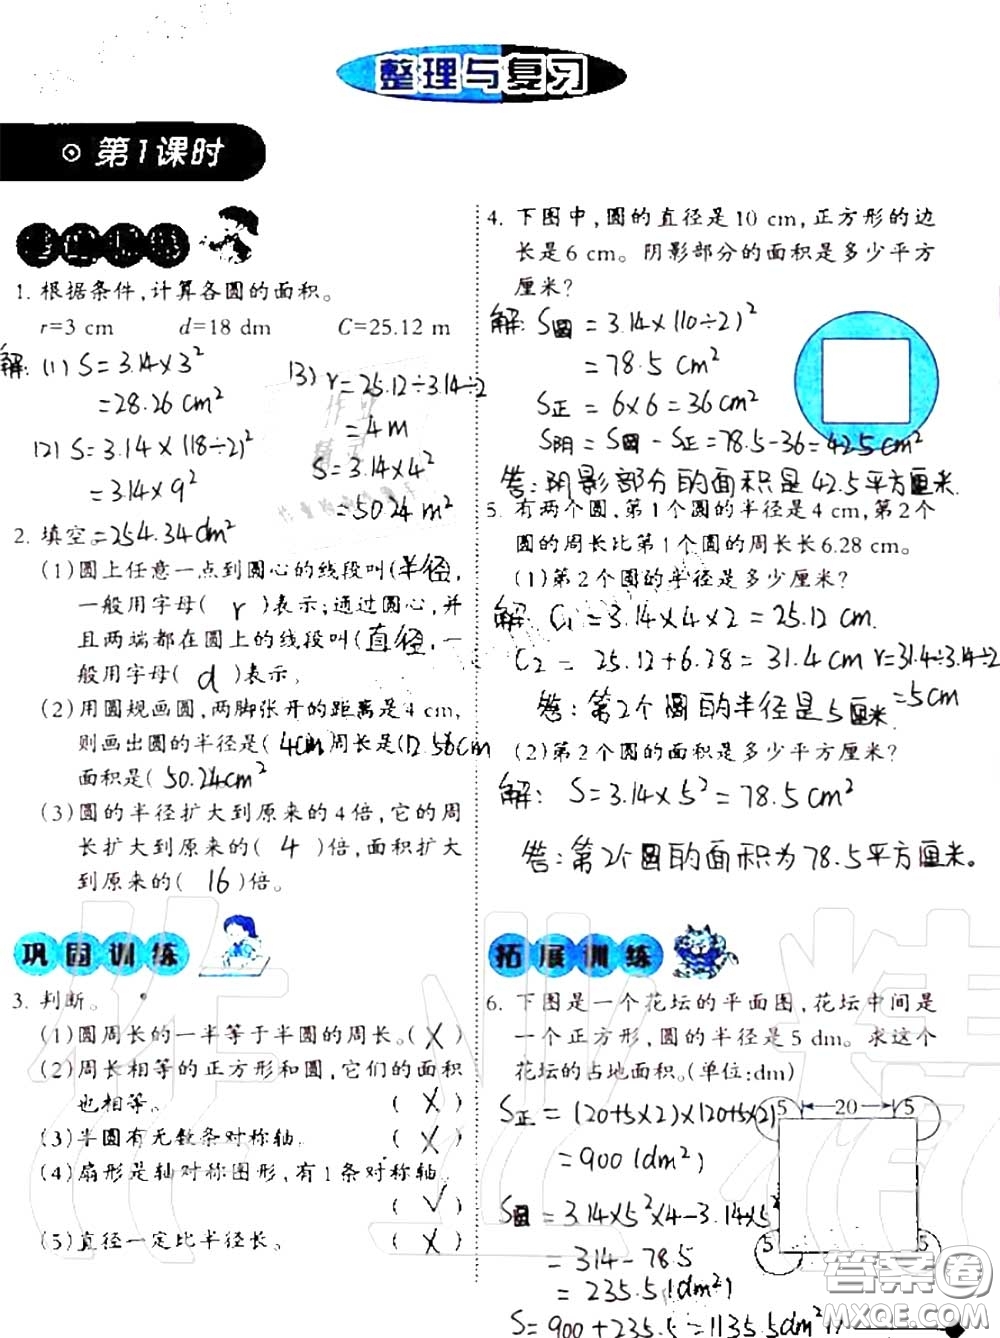 整理与复习
第1课时
1. 根据条件,计算各圆的面积。
r=3 cm d=18 dm C=25.12 m
解: (1) S=3.14×3²
=28.26 cm²
(2) S=3.14×(18÷2)²
=3.14×9²
=254.34 dm²
(3) r=25.12÷3.14÷2
=4m
S=3.14×4²
=50.24 m²
2. 填空。
(1)圆上任意一点到圆心的线段叫(半径,
一般用字母( r )表示;通过圆心,并
且两端都在圆上的线段叫(直径,一
般用字母( d )表示。
(2)用圆规画圆,两脚张开的距离是4 cm,
则画出圆的半径是(4cm 周长是(12.56cm
面积是(50.24cm²
(3)圆的半径扩大到原来的4倍,它的周
长扩大到原来的( 4 )倍,面积扩大
到原来的( 16 )倍。
巩固训练
3. 判断。
(1)圆周长的一半等于半圆的周长。( X )
(2)周长相等的正方形和圆,它们的面积
也相等。 ( X )
(3)半圆有无数条对称轴。 ( X )
(4)扇形是轴对称图形,有1条对称轴。
( √ )
(5)直径一定比半径长。 ( X )
4. 下图中,圆的直径是10 cm,正方形的边
长是6 cm。阴影部分的面积是多少平方
厘米?
解: S圆=3.14×(10÷2)²
=78.5 cm²
S正=6×6=36cm²
S阴=S圆-S正=78.5-36=42.5cm²
答:阴影部分的面积是42.5平方厘米.
5. 有两个圆,第1个圆的半径是4 cm,第2个
圆的周长比第1个圆的周长长6.28 cm。
(1)第2个圆的半径是多少厘米?
解: C1=3.14×4×2=25.12 cm.
C2=25.12+6.28=31.4cm r=31.4÷3.14÷2
=5cm
答:第2个圆的半径是5厘米
(2)第2个圆的面积是多少平方厘米?
解: S=3.14×5²=78.5cm²
答:第2个圆的面积为78.5平方厘米。
拓展训练
6. 下图是一个花坛的平面图,花坛中间是
一个正方形,圆的半径是5 dm。求这个
花坛的占地面积。(单位:dm)
S正=(20+5×2)×(20+5×2)
=900(dm²)
S圆=3.14×5²×4-3.14×5²
=314-78.5
=235.5(dm²)
S=900+235.5=1135.5dm²)
5 20 5
5 5
答案圈
MXQE.COM